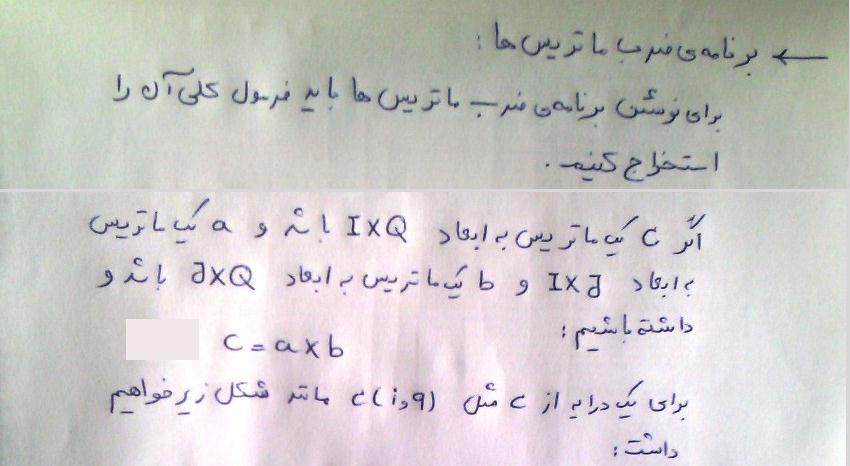 ← برنامه‌ی ضرب ماتریس ها :
برای نوشتن برنامه‌ی ضرب ماتریس ها باید فرمول کلی آن را
استخراج کنیم .
اگر c یک ماتریس به ابعاد I×Q باشد و a یک ماتریس
به ابعاد I×J و b یک ماتریس به ابعاد J×Q باشد و
داشته باشیم :
c = a × b
برای یک درایه از c مثل c(i,q) مانند شکل زیر خواهیم
داشت :